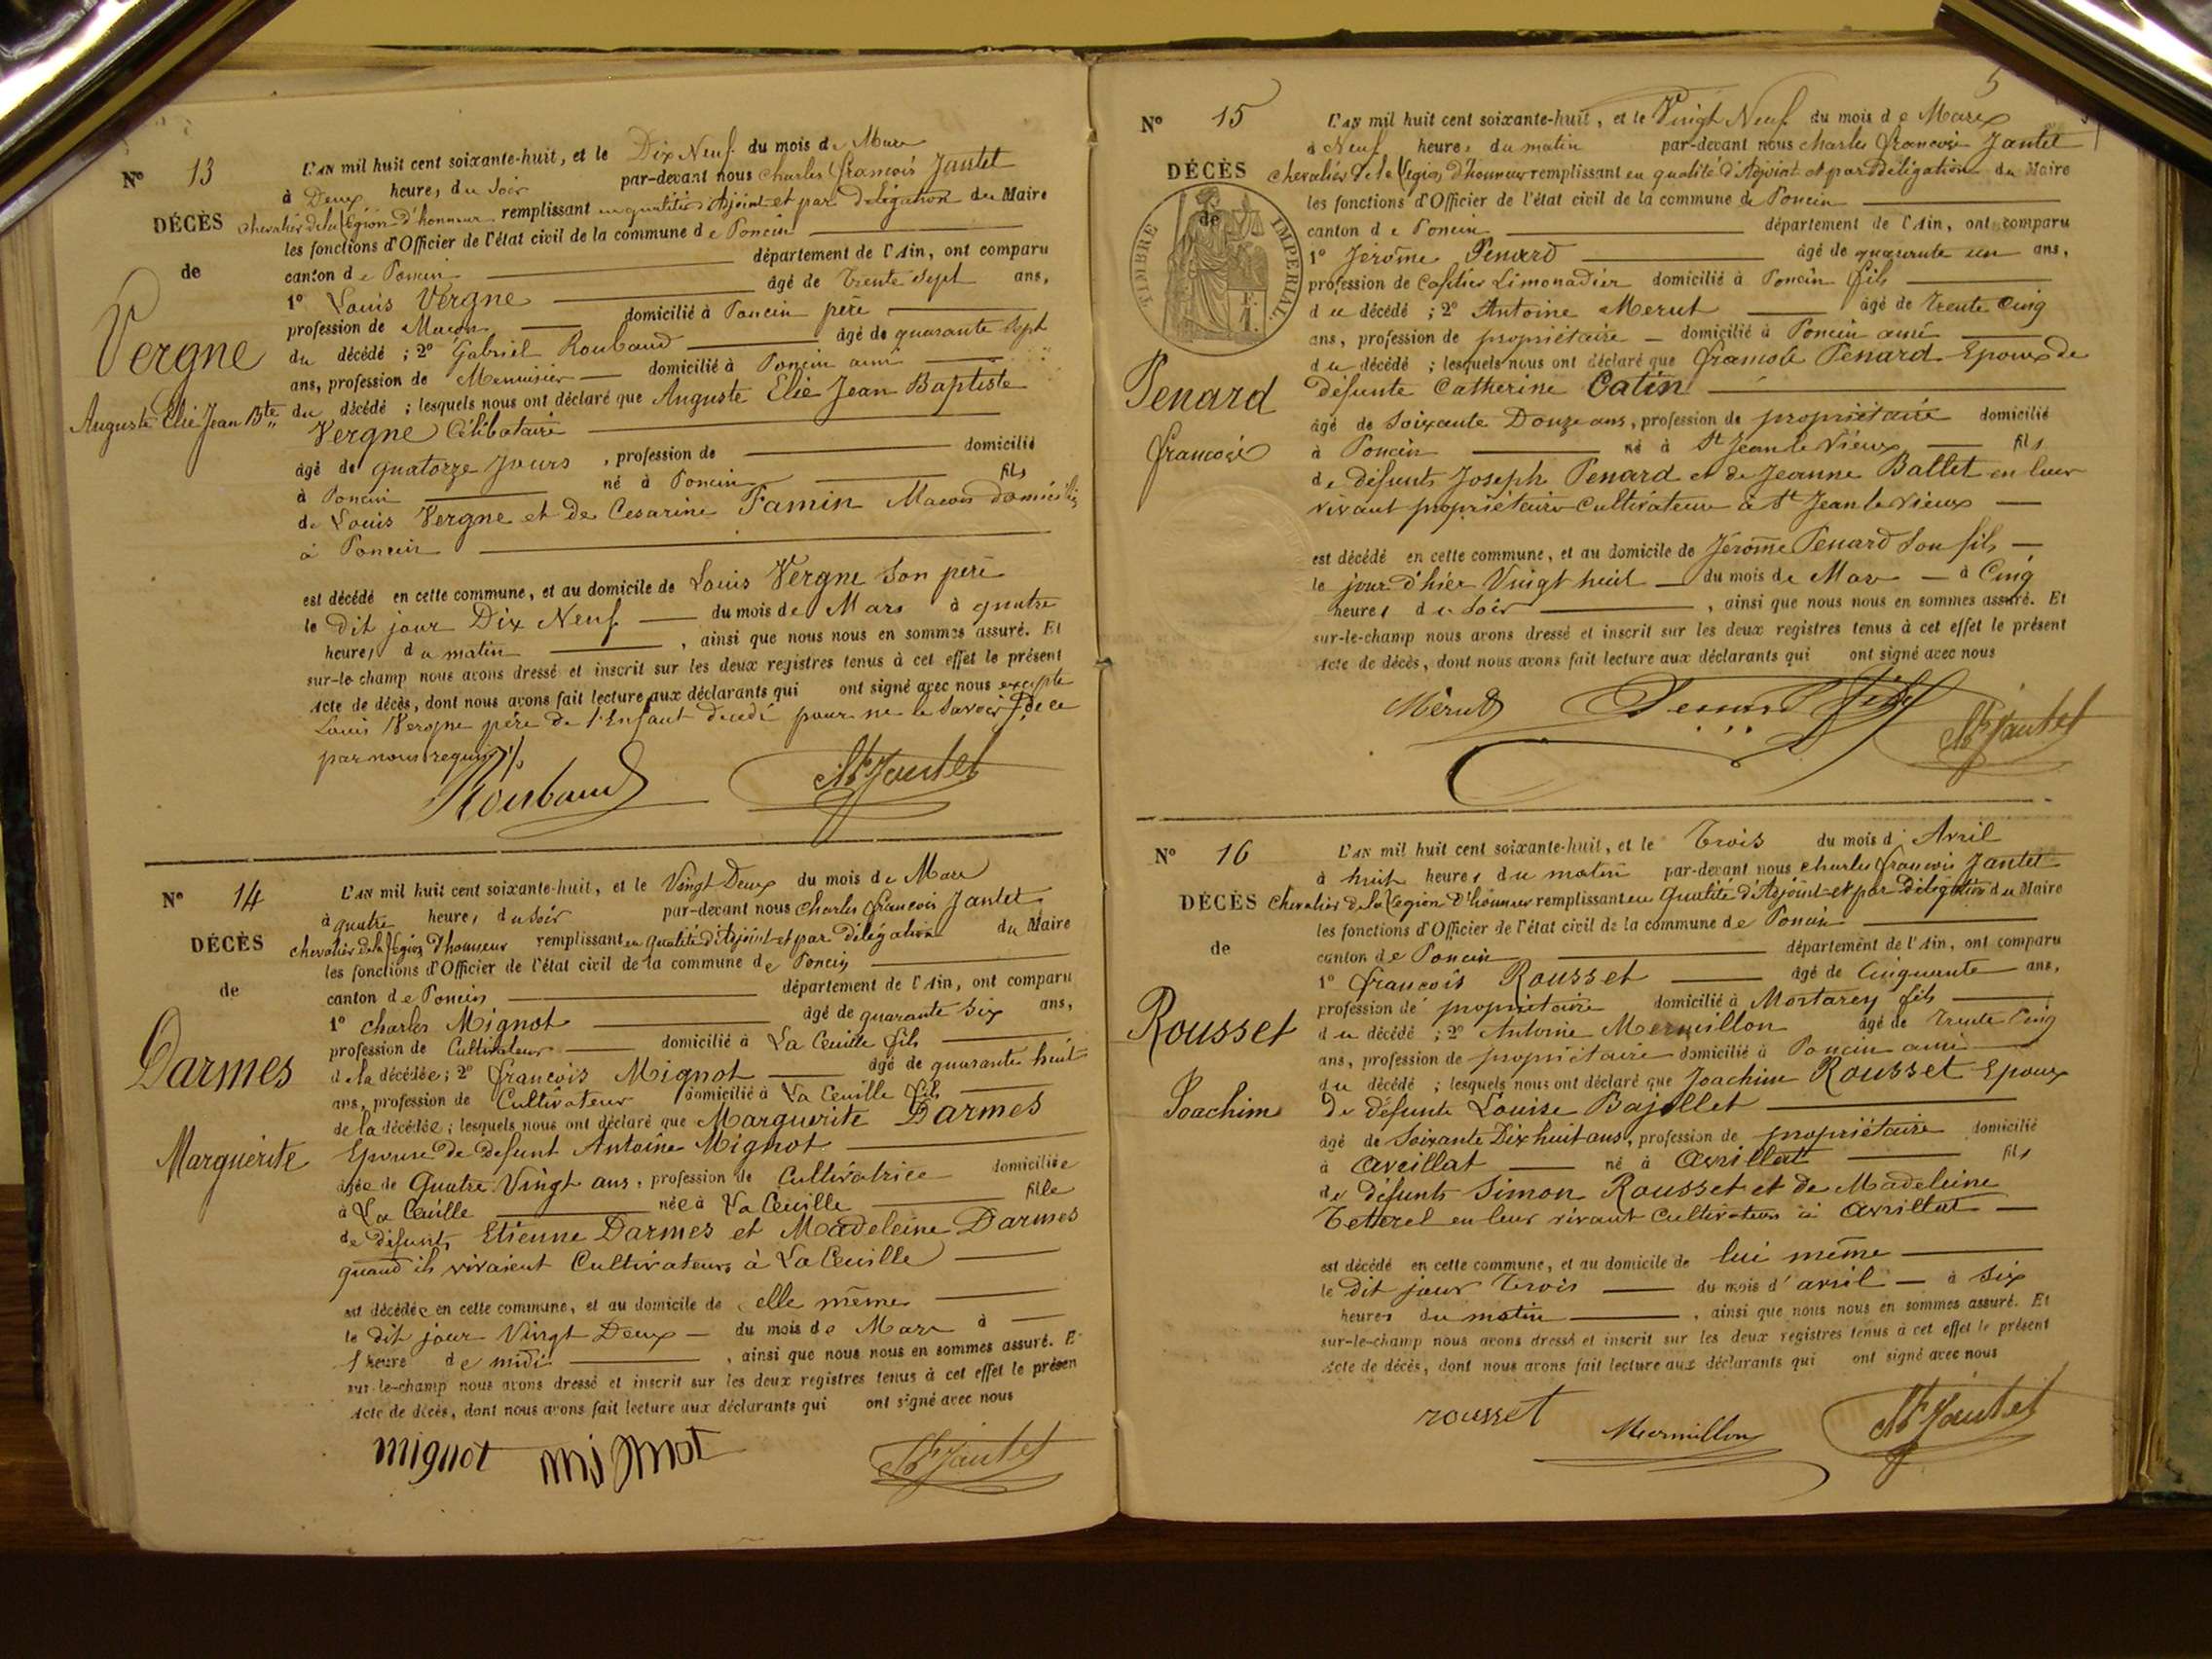 N° 13
DÉCÈS
de
Vergne
Auguste Elie Jean Bte
L'AN mil huit cent soixante-huit, et le Dix Neuf du mois de Mars
à Deux heures du Soir par-devant nous Charles François Jantet
Chevalier de la Légion d'honneur remplissant en qualité d'Adjoint et par délégation du Maire
les fonctions d'Officier de l'état civil de la commune de Poncin
canton de Poncin département de l'Ain, ont comparu
1° Louis Vergne âgé de Trente Sept ans,
profession de Maçon domicilié à Poncin père
du décédé ; 2° Gabriel Roubaud âgé de quarante Sept
ans, profession de Menuisier domicilié à Poncin ami
du décédé ; lesquels nous ont déclaré que Auguste Elie Jean Baptiste
Vergne Célibataire
âgé de quatorze Jours , profession de domicilié
à Poncin né à Poncin fils
de Louis Vergne et de Cesarine Famin Macon domiciliés
à Poncin
est décédé en cette commune, et au domicile de Louis Vergne Son père
le dit jour Dix Neuf du mois de Mars à quatre
heures du matin , ainsi que nous nous en sommes assuré. Et
sur-le-champ nous avons dressé et inscrit sur les deux registres tenus à cet effet le présent
Acte de décès, dont nous avons fait lecture aux déclarants qui ont signé avec nous excepté
Louis Vergne père de l'Enfant décédé pour ne le Savoir de ce
par nous requis
Roubaud Ch. F. Jantet
N° 14
DÉCÈS
de
Darmes
Marguerite
L'AN mil huit cent soixante-huit, et le Vingt Deux du mois de Mars
à quatre heures du Soir par-devant nous Charles François Jantet
Chevalier de la Légion d'honneur remplissant en qualité d'Adjoint et par délégation du Maire
les fonctions d'Officier de l'état civil de la commune de Poncin
canton de Poncin département de l'Ain, ont comparu
1° Charles Mignot âgé de quarante Six ans,
profession de Cultivateur domicilié à La Cueille fils
de la décédée ; 2° François Mignot âgé de quarante huit
ans, profession de Cultivateur domicilié à La Cueille fils
de la décédée ; lesquels nous ont déclaré que Marguerite Darmes
Epouse de defunt Antoine Mignot
âgée de Quatre Vingt ans, profession de Cultivatrice domiciliée
à La Cueille née à La Cueille fille
de défunts Etienne Darmes et Madeleine Darmes
quand ils vivaient Cultivateurs à La Cueille
est décédée en cette commune, et au domicile de elle même
le dit jour Vingt Deux du mois de Mars à
1 heure de midi , ainsi que nous nous en sommes assuré. E
sur-le-champ nous avons dressé et inscrit sur les deux registres tenus à cet effet le présen
Acte de décès, dont nous avons fait lecture aux déclarants qui ont signé avec nous
mignot mignot Ch. F. Jantet
5
N° 15
DÉCÈS
de
TIMBRE IMPERIAL
1 F.
Penard
François
L'AN mil huit cent soixante-huit, et le Vingt Neuf du mois de Mars
à Neuf heures du matin par-devant nous Charles François Jantet
Chevalier de la Légion d'honneur remplissant en qualité d'Adjoint et par Délégation du Maire
les fonctions d'Officier de l'état civil de la commune de Poncin
canton de Poncin département de l'Ain, ont comparu
1° Jérôme Penard âgé de quarante un ans,
profession de Cafetier Limonadier domicilié à Poncin fils
du décédé ; 2° Antoine Merut âgé de trente Cinq
ans, profession de propriétaire domicilié à Poncin ami
du décédé ; lesquels nous ont déclaré que François Penard Epoux de
défunte Catherine Catin
âgé de Soixante Douze ans, profession de propriétaire domicilié
à Poncin né à St Jean le Vieux fils
de défunts Joseph Penard et de Jeanne Ballet en leur
vivant propriétaires Cultivateurs à St Jean le Vieux
est décédé en cette commune, et au domicile de Jérôme Penard Son fils
le jour d'hier Vingt huit du mois de Mars à Cinq
heures du Soir , ainsi que nous nous en sommes assuré. Et
sur-le-champ nous avons dressé et inscrit sur les deux registres tenus à cet effet le présent
Acte de décès, dont nous avons fait lecture aux déclarants qui ont signé avec nous
Mérut Penard fils Ch. F. Jantet
N° 16
DÉCÈS
de
Rousset
Joachim
L'AN mil huit cent soixante-huit, et le Trois du mois d'Avril
à huit heures du matin par-devant nous Charles François Jantet
Chevalier de la Légion d'honneur remplissant en Qualité d'Adjoint et par Délégation du Maire
les fonctions d'Officier de l'état civil de la commune de Poncin
canton de Poncin département de l'Ain, ont comparu
1° François Rousset âgé de Cinquante ans,
profession de propriétaire domicilié à Mortarey fils
du décédé ; 2° Antoine Mermillon âgé de Trente Cinq
ans, profession de propriétaire domicilié à Poncin ami
du décédé ; lesquels nous ont déclaré que Joachim Rousset Epoux
de défunte Louise Bajollet
âgé de Soixante Dix huit ans, profession de propriétaire domicilié
à Avrillat né à Avrillat fils
de défunts Simon Rousset et de Madeleine
Tetterel en leur vivant Cultivateurs à Avrillat
est décédé en cette commune, et au domicile de lui même
le dit jour Trois du mois d'avril à Six
heures du matin , ainsi que nous nous en sommes assuré. Et
sur-le-champ nous avons dressé et inscrit sur les deux registres tenus à cet effet le présent
Acte de décès, dont nous avons fait lecture aux déclarants qui ont signé avec nous
rousset Mermillon Ch. F. Jantet